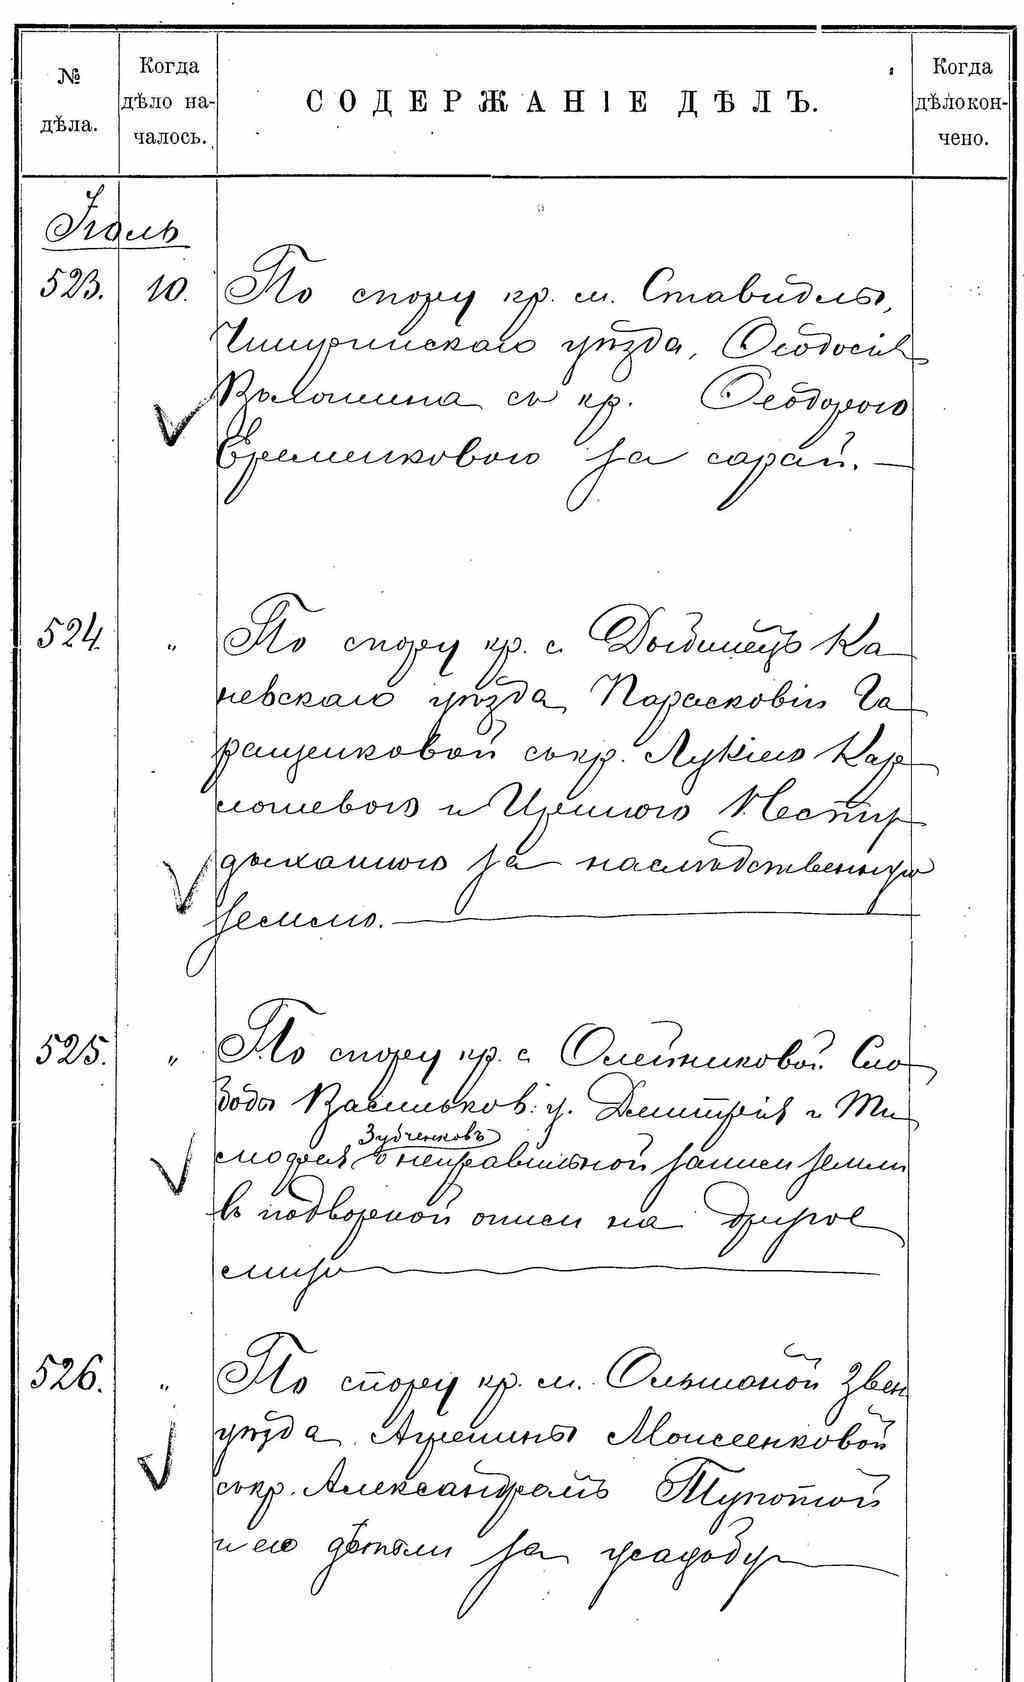 № дѣла.
Когда дѣло началось.
СОДЕРЖАНІЕ ДѢЛЪ.
Когда дѣло кончено.
Іюль
523. 10. По спору кр. м. Ставидлы,
Чигиринскаго уѣзда, Ѳеодосія
Волошина съ кр. Ѳеодоромъ
Еременковымъ за сарай. —
524. „ По спору кр. с. Ка
невскаго уѣзда Парасковіи Га
ращенковой съ кр. Лукіею Кар
и
за наслѣдственную
землю.
525. „ По спору кр. с. Олейниковой Сло
боды Васильков. у. Дмитрія и Ти
мофея Зубченковъ о неправильной записи земли
въ подворной описи на другое
лицо
526. „ По спору кр. м. Ольшаной Звен
уѣзда Агрипины Моисеенковой
съ кр. Александромъ
и его дѣтьми за усадьбу